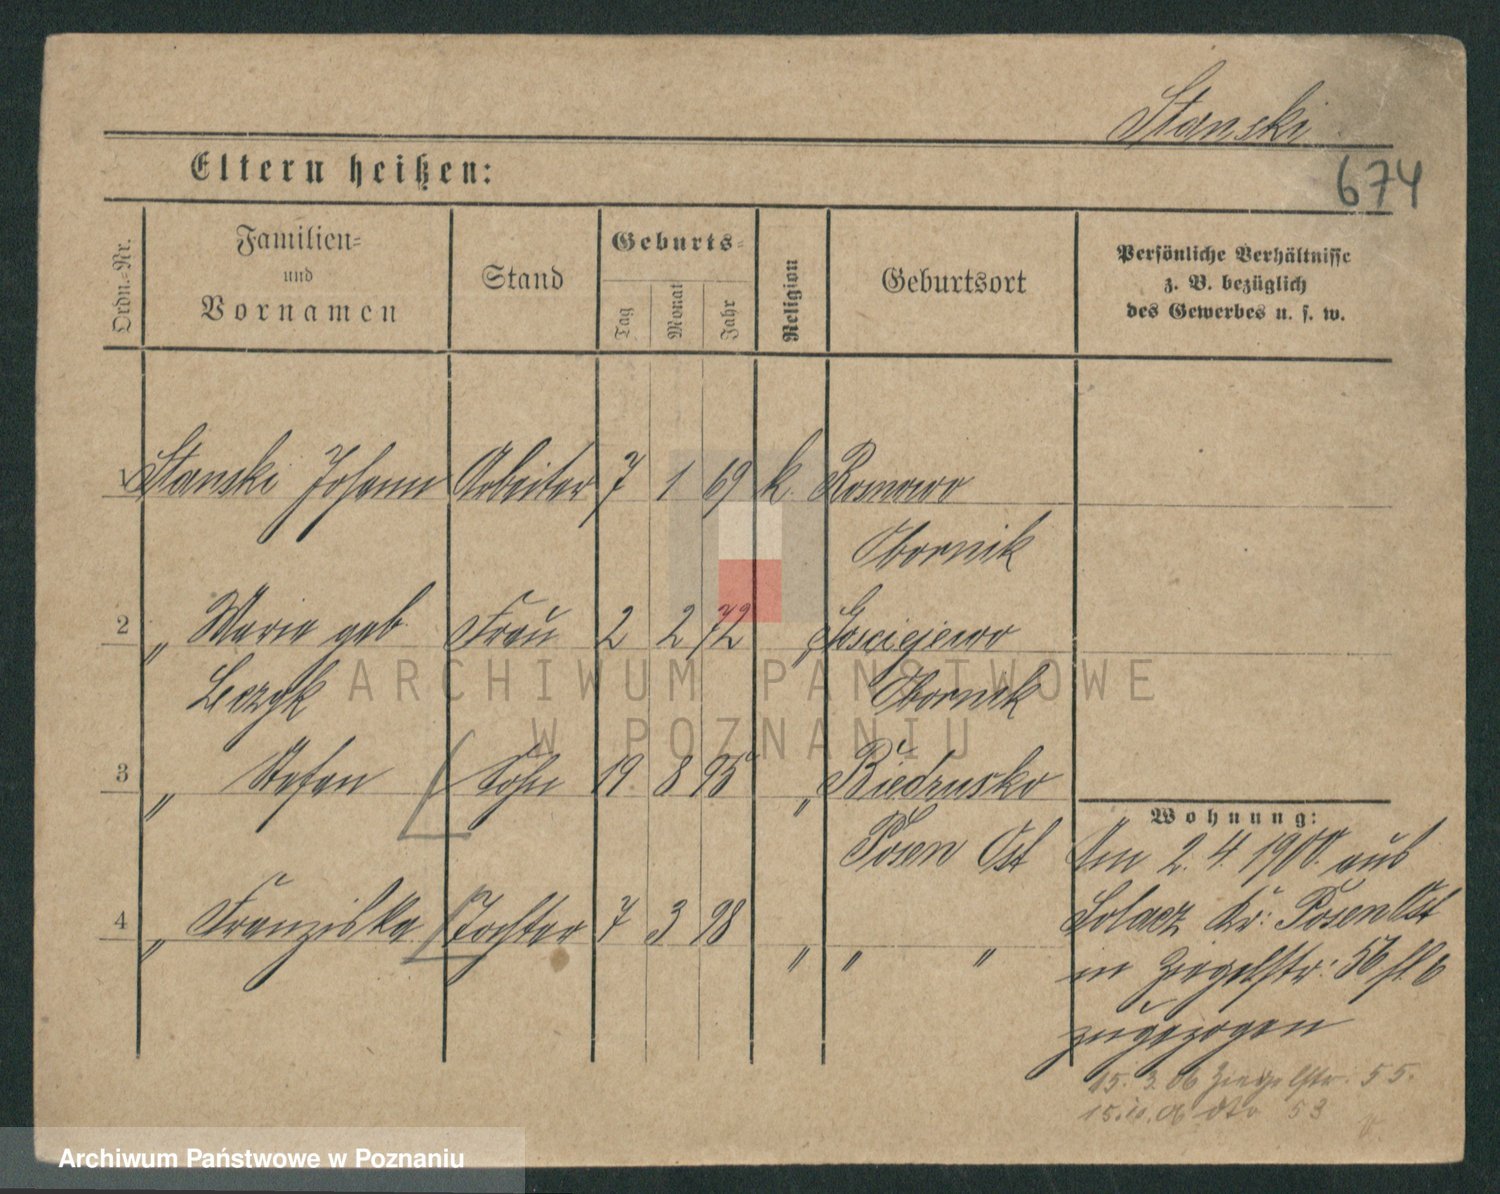 Stanski
Eltern heißen:
674
Ordn.-Nr.
Familien-
und
Vornamen
Stand
Geburts-
Tag
Monat
Jahr
Religion
Geburtsort
Persönliche Verhältnisse
z. B. bezüglich
des Gewerbes u. s. w.
1 Stanski Johann Arbeiter 7 1 69 k. Romowo
Obornik
2 " Marie geb. Frau 2 2 72 " Gosciejewo
Leczyk Obornik
3 " Stefan Sohn 19 8 95 " Biedrusko
Posen Ost
4 " Franziska Tochter 7 3 98 " " "
Wohnung:
Am 2. 4. 1900. aus
Solacz Kr: Posen Ost
in Ziegelstr: 56 fl. 6
zugezogen
15. 3. 06 Ziegelstr. 55.
15.10.06 dto 53
ARCHIWUM PAŃSTWOWE
W POZNANIU
Archiwum Państwowe w Poznaniu